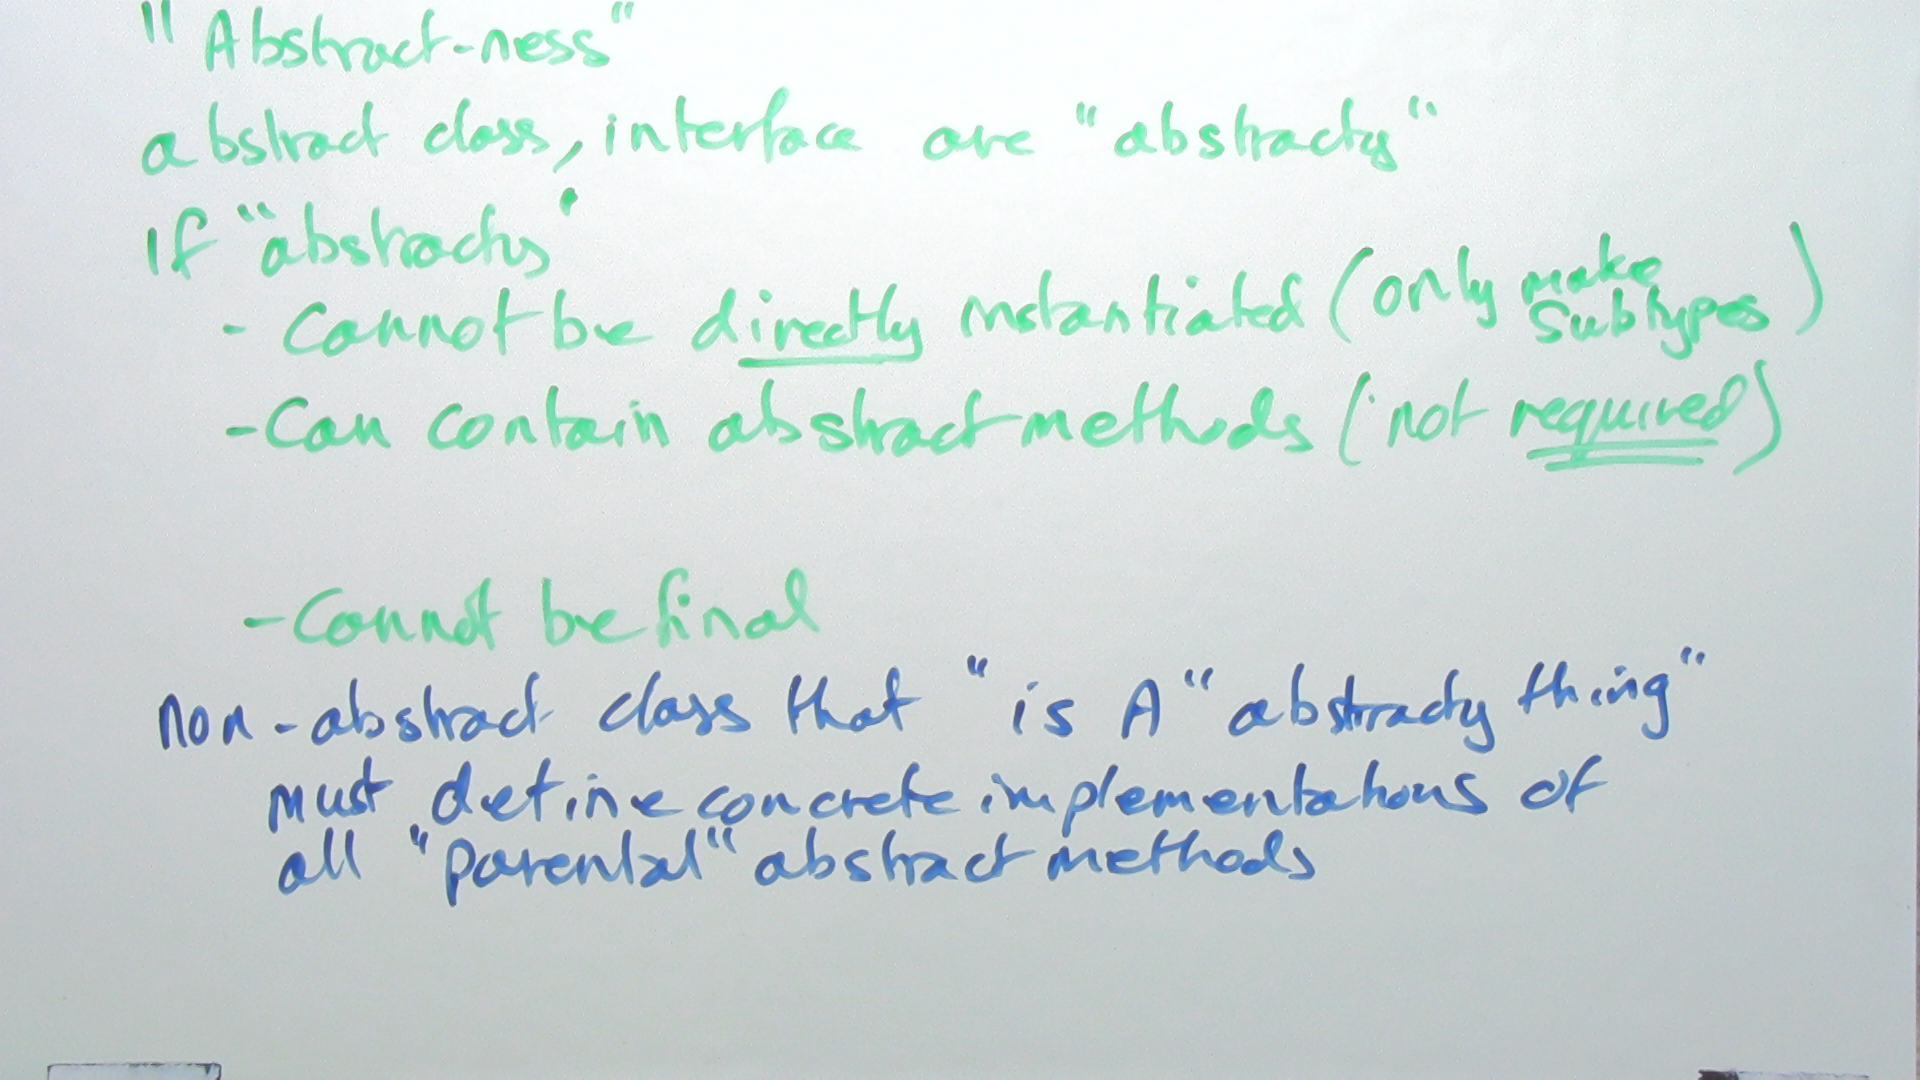 "Abstract-ness"
abstract class, interface are "abstracty"
If "abstracty"
- Cannot be directly instantiated (only make subtypes)
- Can contain abstract methods (not required)
- Cannot be final
non-abstract class that "is A" abstracty thing"
must define concrete implementations of
all "parental" abstract methods